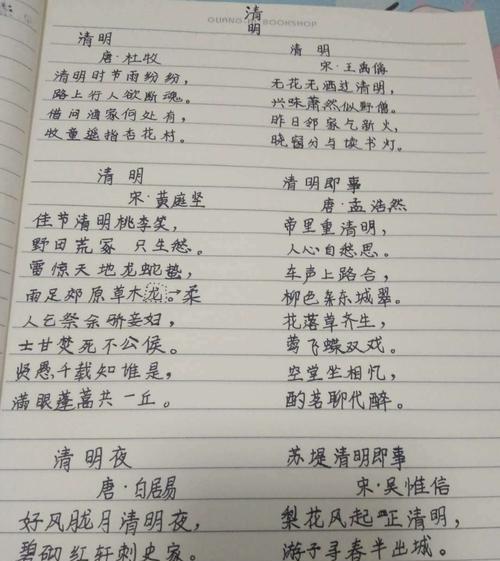 清明
QUANG BOOKSHOP
清明
唐·杜牧
清明时节雨纷纷，
路上行人欲断魂。
借问酒家何处有，
牧童遥指杏花村。
清明
宋·王禹偁
无花无酒过清明，
兴味萧然似野僧。
昨日邻家乞新火，
晓窗分与读书灯。
清明
宋·黄庭坚
佳节清明桃李笑，
野田荒冢只生愁。
雷惊天地龙蛇蛰，
雨足郊原草木龙。→柔
人乞祭余骄妾妇，
士甘焚死不公侯。
贤愚千载知谁是，
满眼蓬蒿共一丘。
清明即事
唐·孟浩然
帝里重清明，
人心自愁思。
车声上路合，
柳色东城翠。
花落草齐生，
莺飞蝶双戏。
空堂坐相忆，
酌茗聊代醉。
清明夜
唐·白居易
好风胧月清明夜，
碧砌红轩刺史家。
苏堤清明即事
宋·吴惟信
梨花风起正清明，
游子寻春半出城。